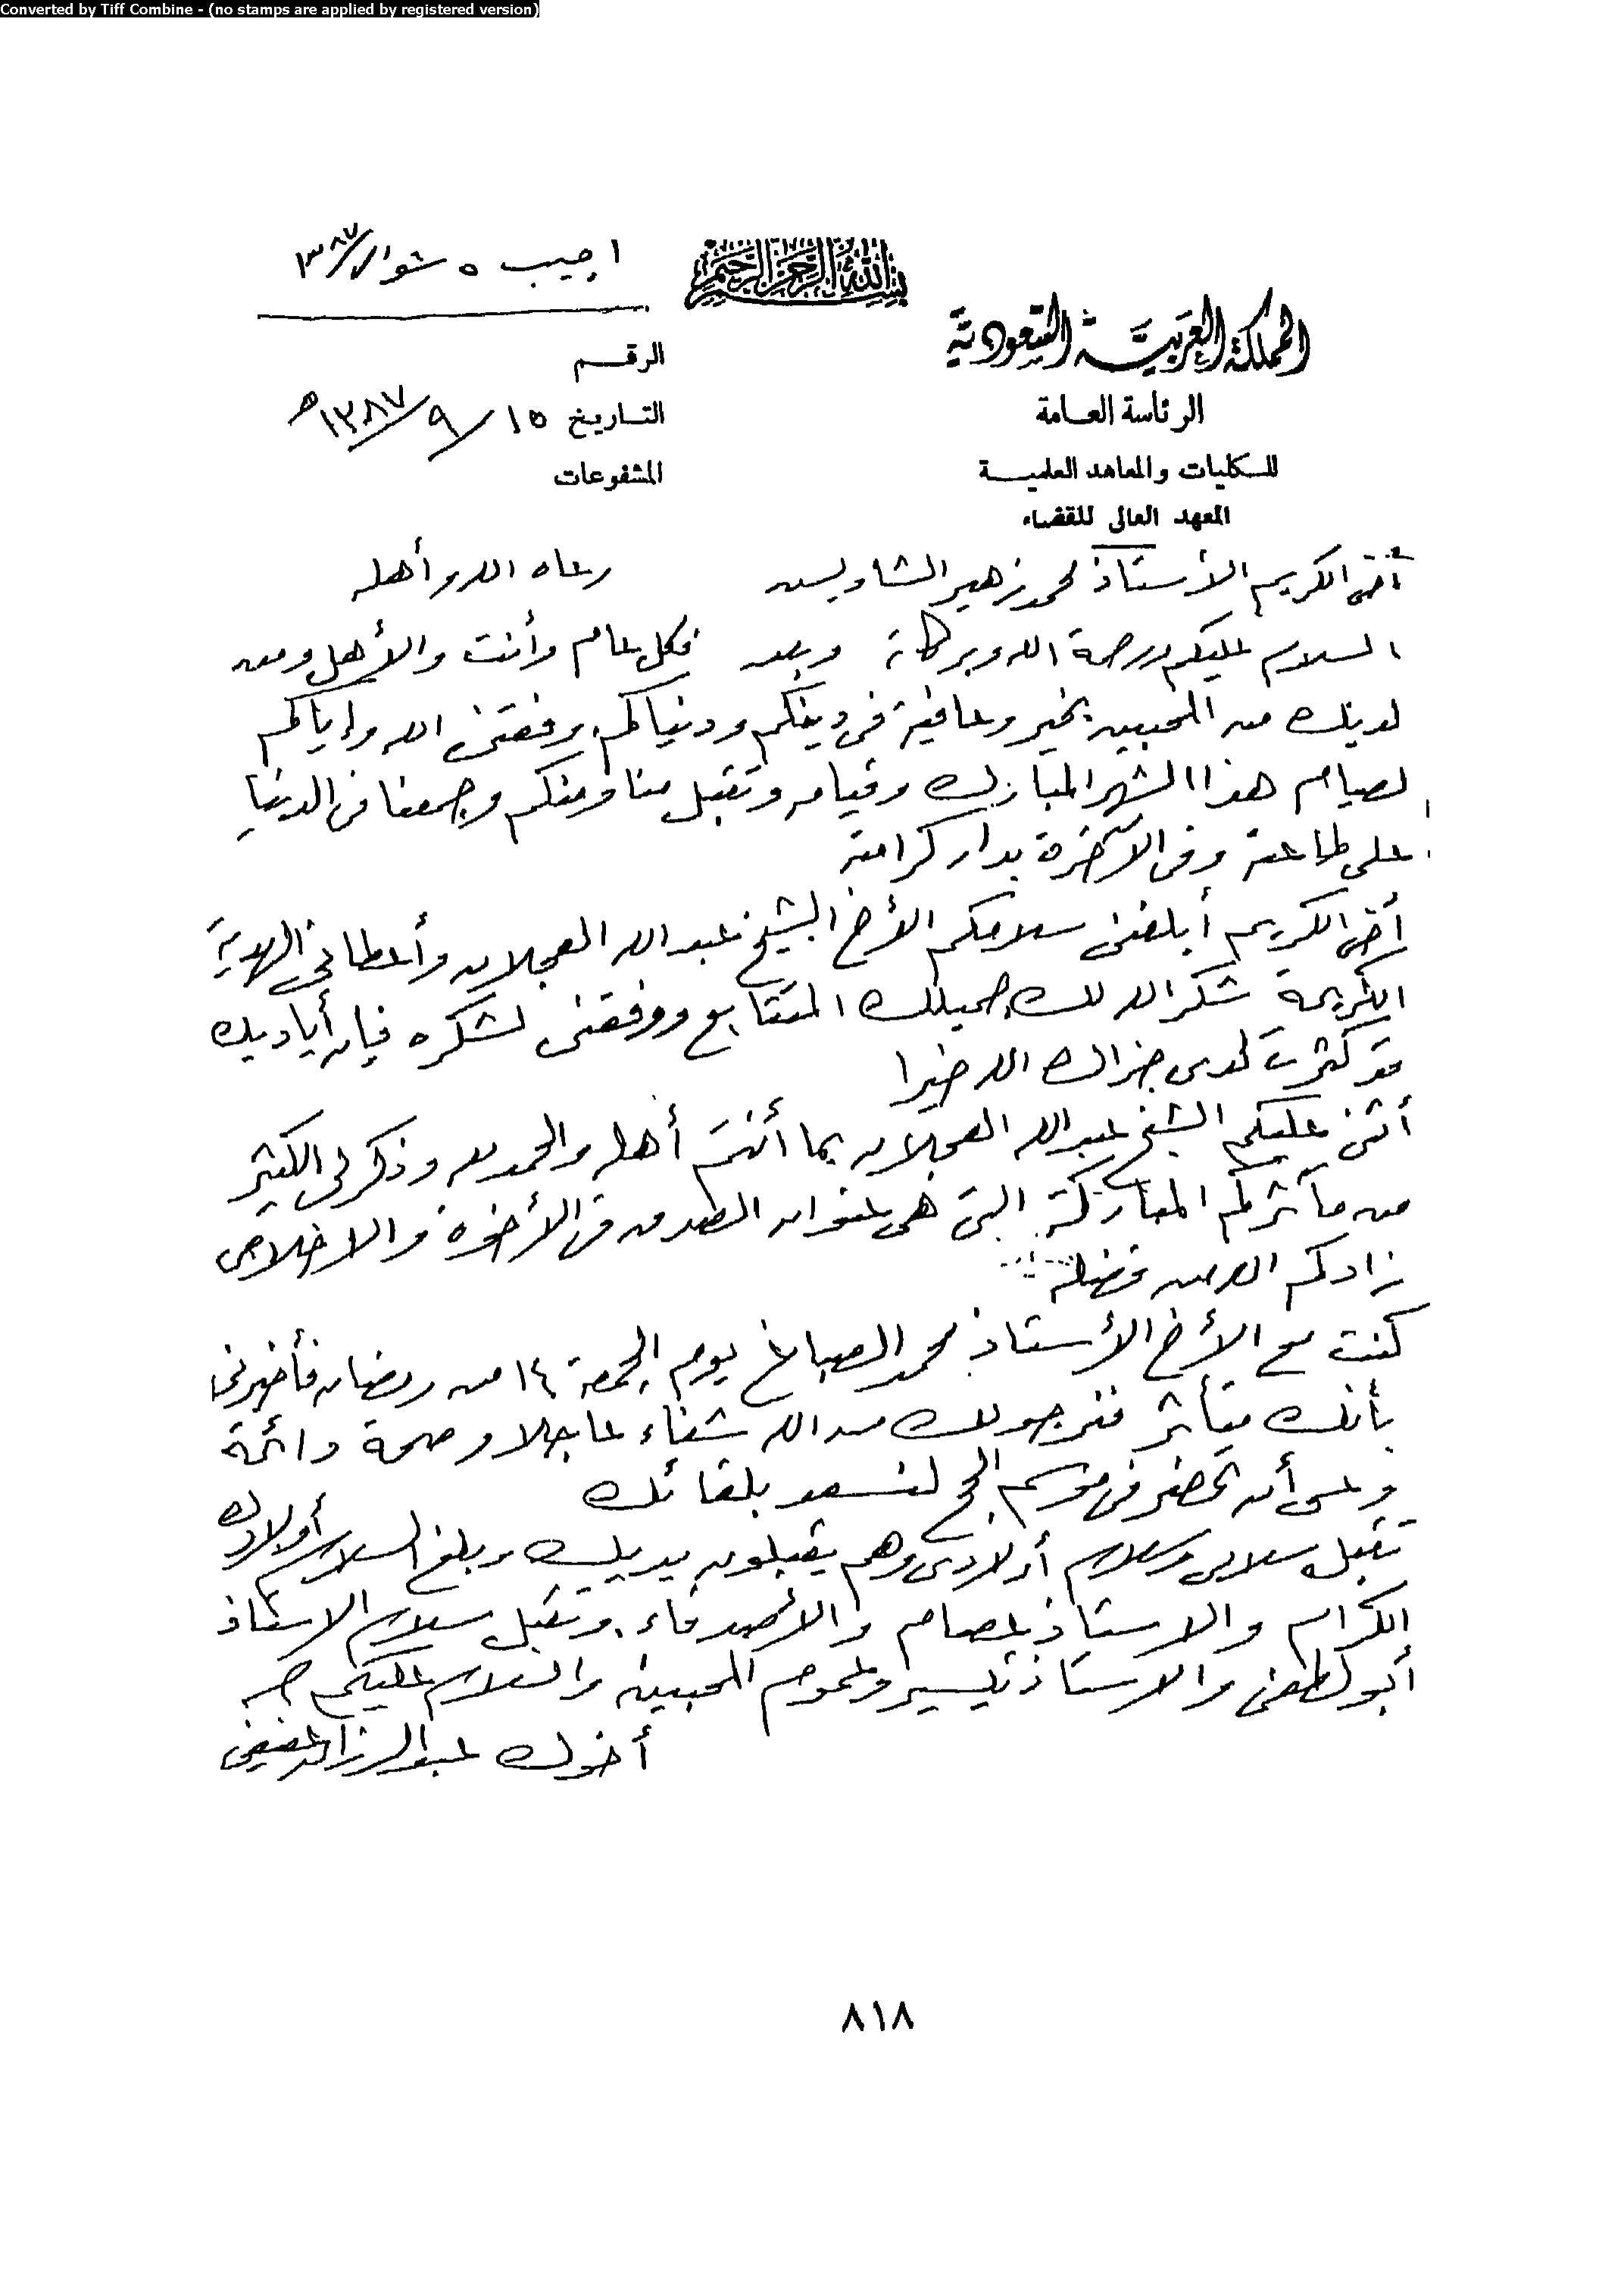 Converted by Tiff Combine - (no stamps are applied by registered version)
اجيب ٥ شوال/١٣٨٧
بسم الله الرحمن الرحيم
المملكة العربية السعودية
الرئاسة العامة
للكليات والمعاهد العلمية
المعهد العالى للقضاء
الرقم
التاريخ ١٥/٩/١٣٨٧هـ
المشفوعات
أخى الكريم الأستاذ محمد زهير الشاويس رعاه الله وأهله
السلام عليكم ورحمة الله وبركاته وبعد فكل عام وأنت والأهل ومن
لديك من المحبين بخير وعافية فى دينكم ودنياكم وفقنى الله وإياكم
لصيام هذا الشهر المبارك وقيامه وتقبل منا ومنكم وجمعنا فى الدنيا
على طاعته وفى الآخرة بدار كرامته
أخى الكريم أبلغنى سلامكم الأخ الشيخ عبدالله العجلان وأعطانى الهدية
الكريمة شكر الله لك جميلك المتتابع ووفقنى لشكره فإن أياديك
قد كثرت لدى جزاك الله خيرا
أثنى عليكم الشيخ عبدالله العجلان بما أنتم أهله والحمد لله وذكر لى الكثير
من مآثركم المباركة التى هى عنوان الصدق فى الأخوة والاخلاص
زادكم الله من فضله
كنت مع الأخ الأستاذ محمد الصباغ يوم الجمعة ١٤ من رمضان فأخبرنى
بأنك متأثر فنرجو لك من الله شفاء عاجلا وصحة دائمة
وعسى أن تحضر فى موسم الحج لنسعد بلقائك
تقبل سلامى وسلام أولادى وهم يقبلون يديك وبلغ السلام أولادك
الكرام والاستاذ عصام والأصدقاء. وتقبل سلام الاستاذ
أبو لطفى والاستاذ تيسير وعموم المحبين والسلام عليكم
أخوك عبدالرزاق عفيفى
٨١٨